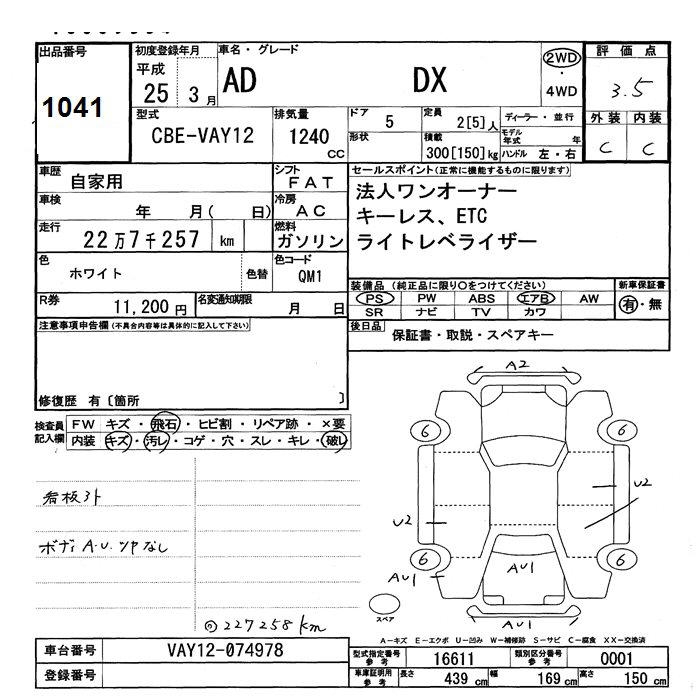 出品番号
1041
初度登録年月
平成
25 3 月
車名・グレード
AD DX
2WD
・
4WD
評価点
3.5
外装 内装
C C
型式
CBE-VAY12
排気量
1240
CC
ドア
5
形状
定員
2[5]人
積載
300[150]kg
ディーラー・並行
モデル年式 年
ハンドル 左・右
車歴
自家用
シフト
FAT
車検
年 月( 日)
冷房
AC
走行
22万7千257 km
燃料
ガソリン
色
ホワイト
色替
色コード
QM1
R券
11,200円
名変通知期限
月 日
セールスポイント(正常に機能するものに限ります)
法人ワンオーナー
キーレス、ETC
ライトレベライザー
装備品(純正品に限り○をつけてください)
PS PW ABS エアB AW
SR ナビ TV カワ
新車保証書
有・無
後日品
保証書・取説・スペアキー
注意事項申告欄(不具合内容等は具体的に記入して下さい)
修復歴 有〔箇所 〕
検査員
記入欄
FW キズ・飛石・ヒビ割・リペア跡・×要
内装 キズ・汚レ・コゲ・穴・スレ・キレ・破レ
看板外
ボディA.U.ツヤなし
◎227258km
A2
6 6
U2
U2
6 6
AU1
AU1
AU1
スペア
A-キズ E-エクボ U-凹み W-補修跡 S-サビ C-腐食 XX-交換済
車台番号
VAY12-074978
登録番号
型式指定番号
参考
16611
類別区分番号
参考
0001
車庫証明用
参考
長さ
439 cm
幅
169 cm
高さ
150 cm